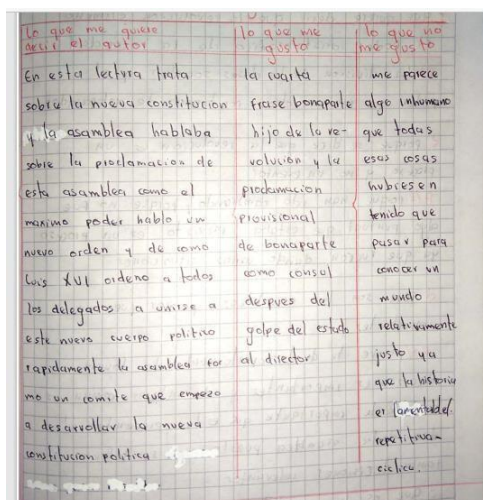 lo que me quiere
decir el autor
En esta lectura trata
sobre la nueva constitucion
y la asamblea hablaba
sobre la proclamacion de
esta asamblea como el
maximo poder hablo un
nuevo orden y de como
Luis XVI ordeno a todos
los delegados a unirse a
este nuevo cuerpo politico
rapidamente la asamblea for
mo un comite que empezo
a desarrollar la nueva
constitucion politica
lo que me
gusto
la cuarta
frase bonaparte
hijo de la re-
volucion y la
proclamacion
provisional
de bonaparte
como consul
despues del
golpe del estado
al director
lo que no
me gusto
me parece
algo inhumano
que todas
esas cosas
hubiesen
tenido que
pasar para
conocer un
mundo
relativamente
justo ya
que la historia
es
repetitiva-
ciclica.